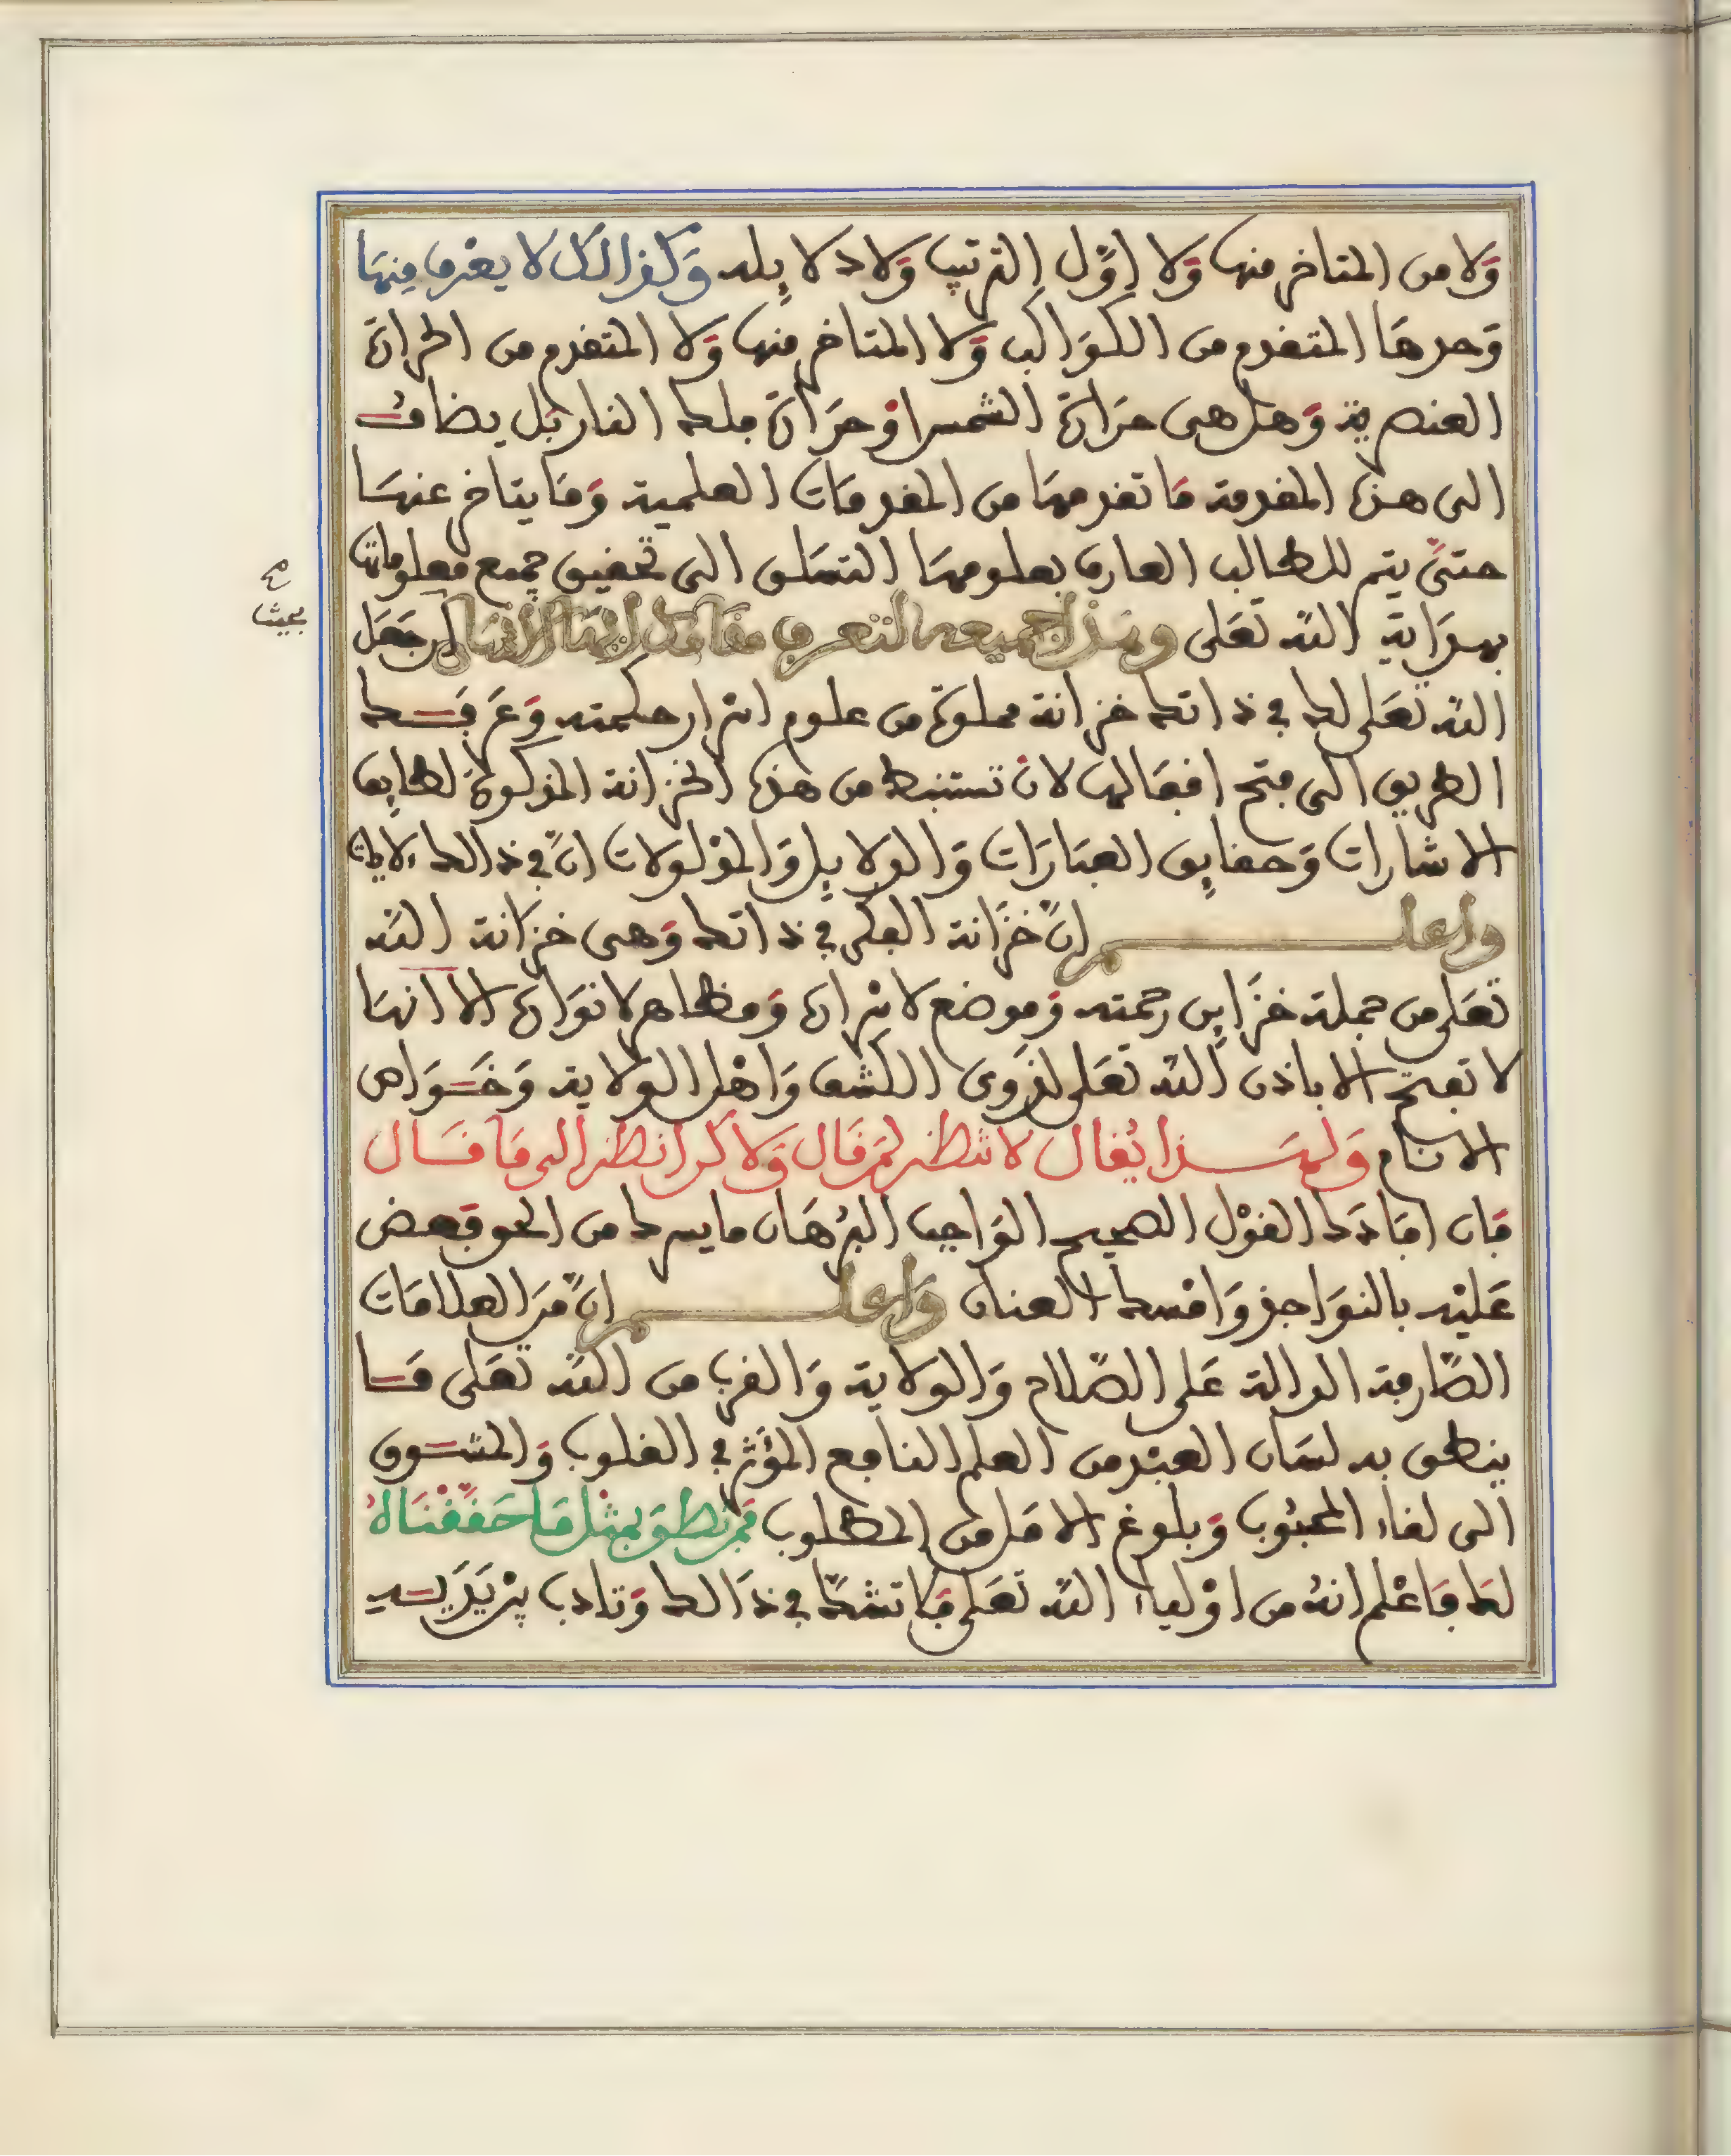 وَلا من المتاخر منها وَلا اوّل الترتيب وَلا دلايله وَكذالك لا يعرف منها
وَحدهَا المتقدم من الكوَاكب وَلا المتاخر منها وَلا المتقدم من الحرارة
العنصرية وَهل هى حرَارة الشمس اوْ حرَارة فلك النار بَل يضاف
الى هذه المقدمة مَا تقدمهَا من المقدمَات العلمية وَمَا يتاخر عنهَا
حتىّ يتم للطالب العارف بعلومهَا التسَلق الى تحقيق جميع معلوماتها
بهدَاية اللّه تعَلى وهذا جميعه التعرف مقامك ايها الانسان اذ جَعَل
اللّه تعَلى لك في ذاتك خزانة مملوة من علوم اسْرار حكمته وَعَرفَك
الطريق الى فتح اقفالها لان تستنبط من هذه الخزانة المذكورة لطايف
الاشارات وَحقايق العبَارَات وَالدلايل وَالمدْلولات انّ في ذالك لايات
واعلم انّ خزَانة الفكر في ذاتك وَهى خزَانة اللّه
تعَلى من جملة خزَاين رحمته وَموضع لاسْراره وَمظاهر لانوَاره الا انهَا
لا تفتح الا باذن اللّه تعَلى لذوى الكشف وَاهْل الولاية وَخَوَاص
الانام وَلهَذا يُقال لا تنظر لمَن قَال وَلاكن انظر الى مَا قَال
فان افادَك القوْل الصحيح الوَاجب البرْهَان ما يسرك من الحق فعض
عَليْه بالنوَاجذ وَامْسك العنان وَاعلم انّ مَن العلامَات
الصّادقة الدالة عَلى الصّلاح وَالولاية وَالقرب من اللّه تعَلى مَا
ينطق به لسَان العبْد من العلم النافع المؤَثر في القلوب وَالمشوق
الى لقاء المحبُوب وَبلوغ الامَل من المطلوب فمَن نطَق بمثْل مَا حَقّقْنَاهُ
لك فَاعْلم انهُ من اوْلياء اللّه تعَلى فَلا تشكّ في ذَالك وَتادب بيْن يَدَيه
بحيث